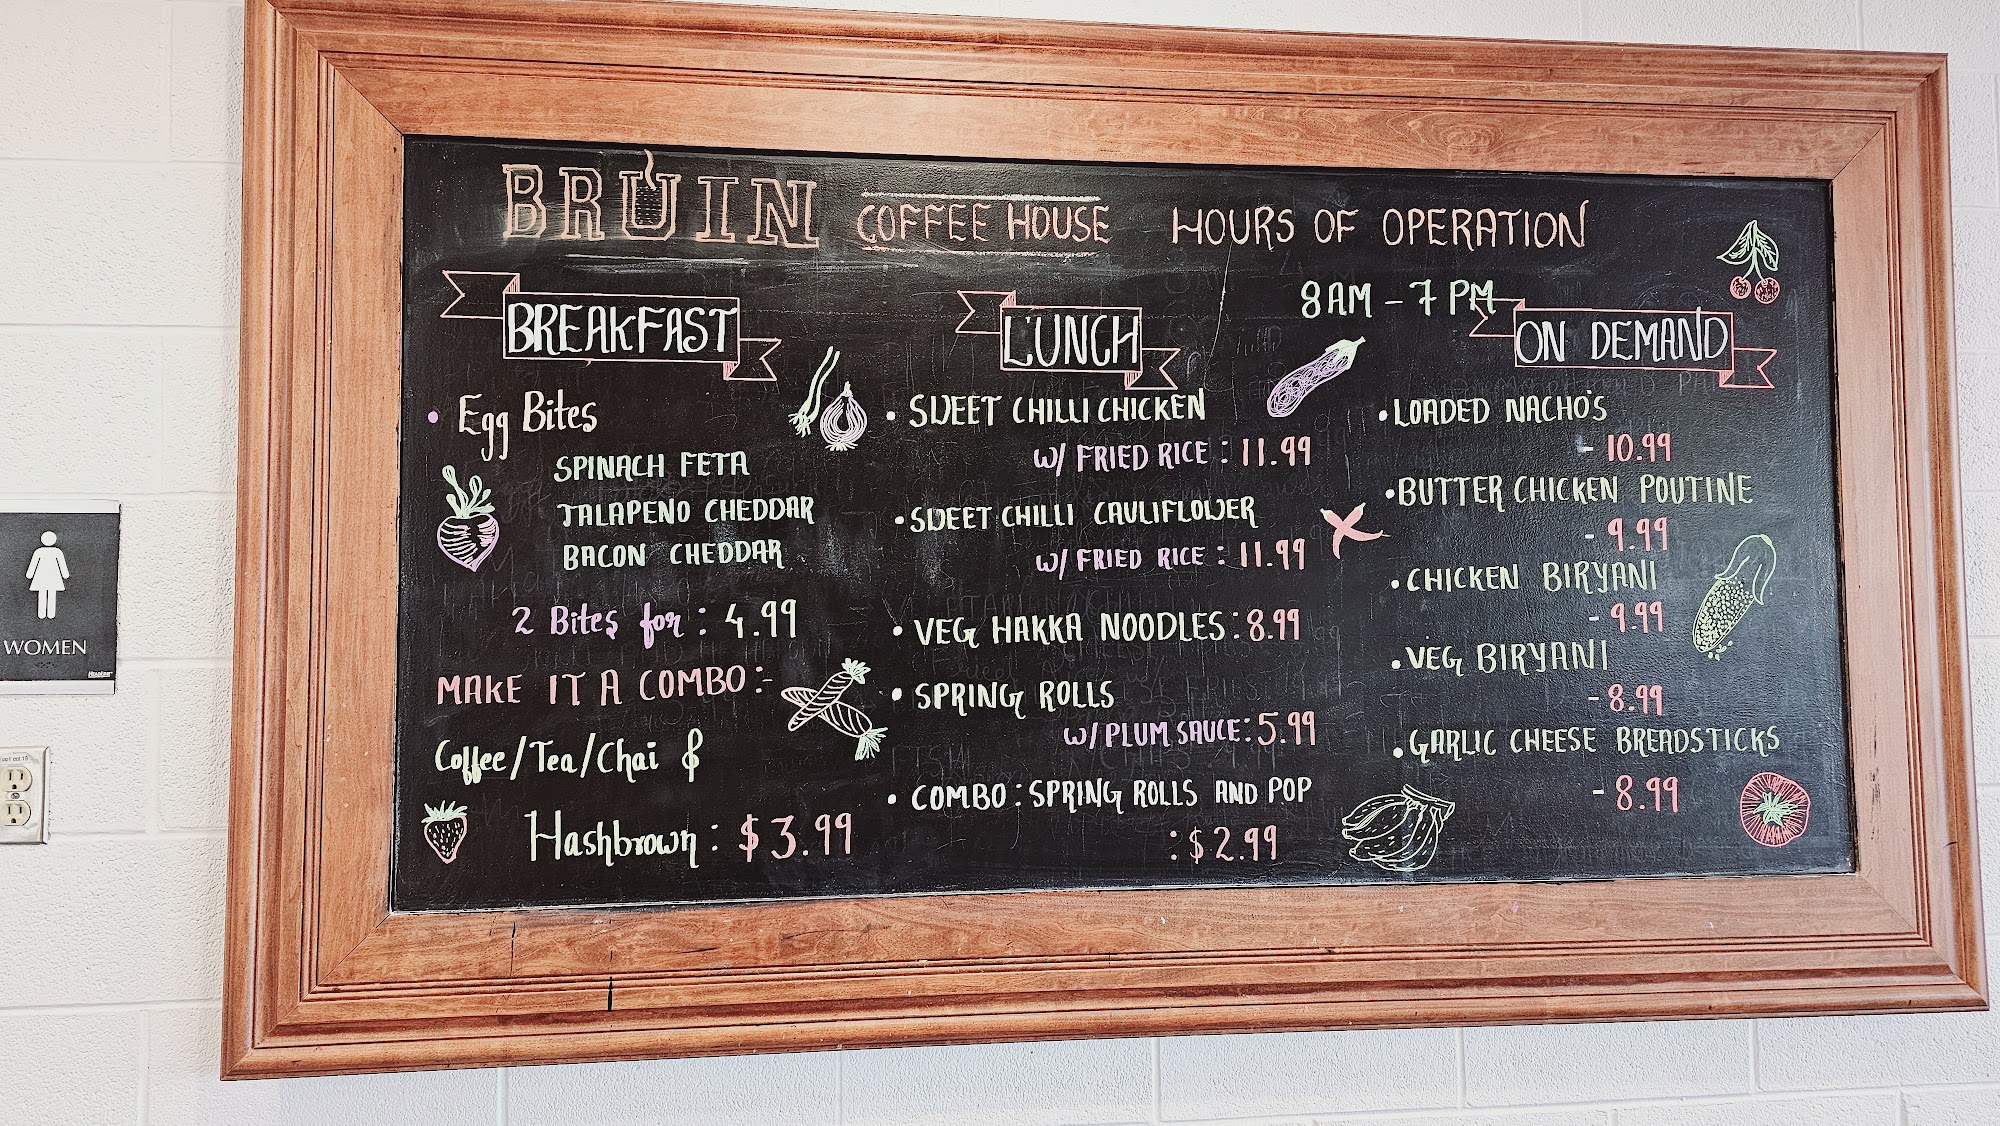 BRUIN COFFEE HOUSE HOURS OF OPERATION
8AM - 7 PM
BREAKFAST
• Egg Bites
SPINACH FETA
JALAPENO CHEDDAR
BACON CHEDDAR
2 Bites for : 4.99
MAKE IT A COMBO :-
Coffee/Tea/Chai &
Hashbrown : $3.99
LUNCH
• SWEET CHILLI CHICKEN
W/ FRIED RICE : 11.99
• SWEET CHILLI CAULIFLOWER
W/ FRIED RICE : 11.99
• VEG HAKKA NOODLES : 8.99
• SPRING ROLLS
W/ PLUM SAUCE : 5.99
• COMBO : SPRING ROLLS AND POP
: $2.99
ON DEMAND
• LOADED NACHO'S
- 10.99
• BUTTER CHICKEN POUTINE
- 9.99
• CHICKEN BIRYANI
- 9.99
• VEG BIRYANI
- 8.99
• GARLIC CHEESE BREADSTICKS
- 8.99
WOMEN